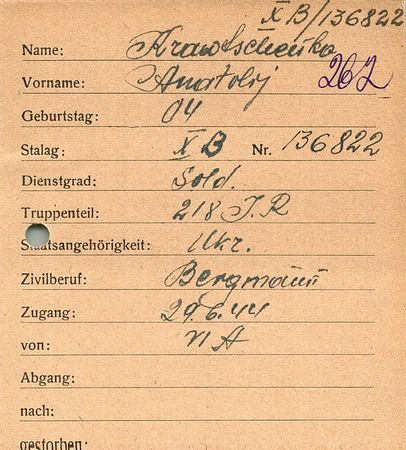 X B/136822
Name: Krawtschenko
Vorname: Anatolij 262
Geburtstag: 04
Stalag: X B Nr. 136822
Dienstgrad: Sold.
Truppenteil: 218 J.R
Staatsangehörigkeit: Ukr.
Zivilberuf: Bergmann
Zugang: 29.6.44
von: VI A
Abgang:
nach:
gestorben: